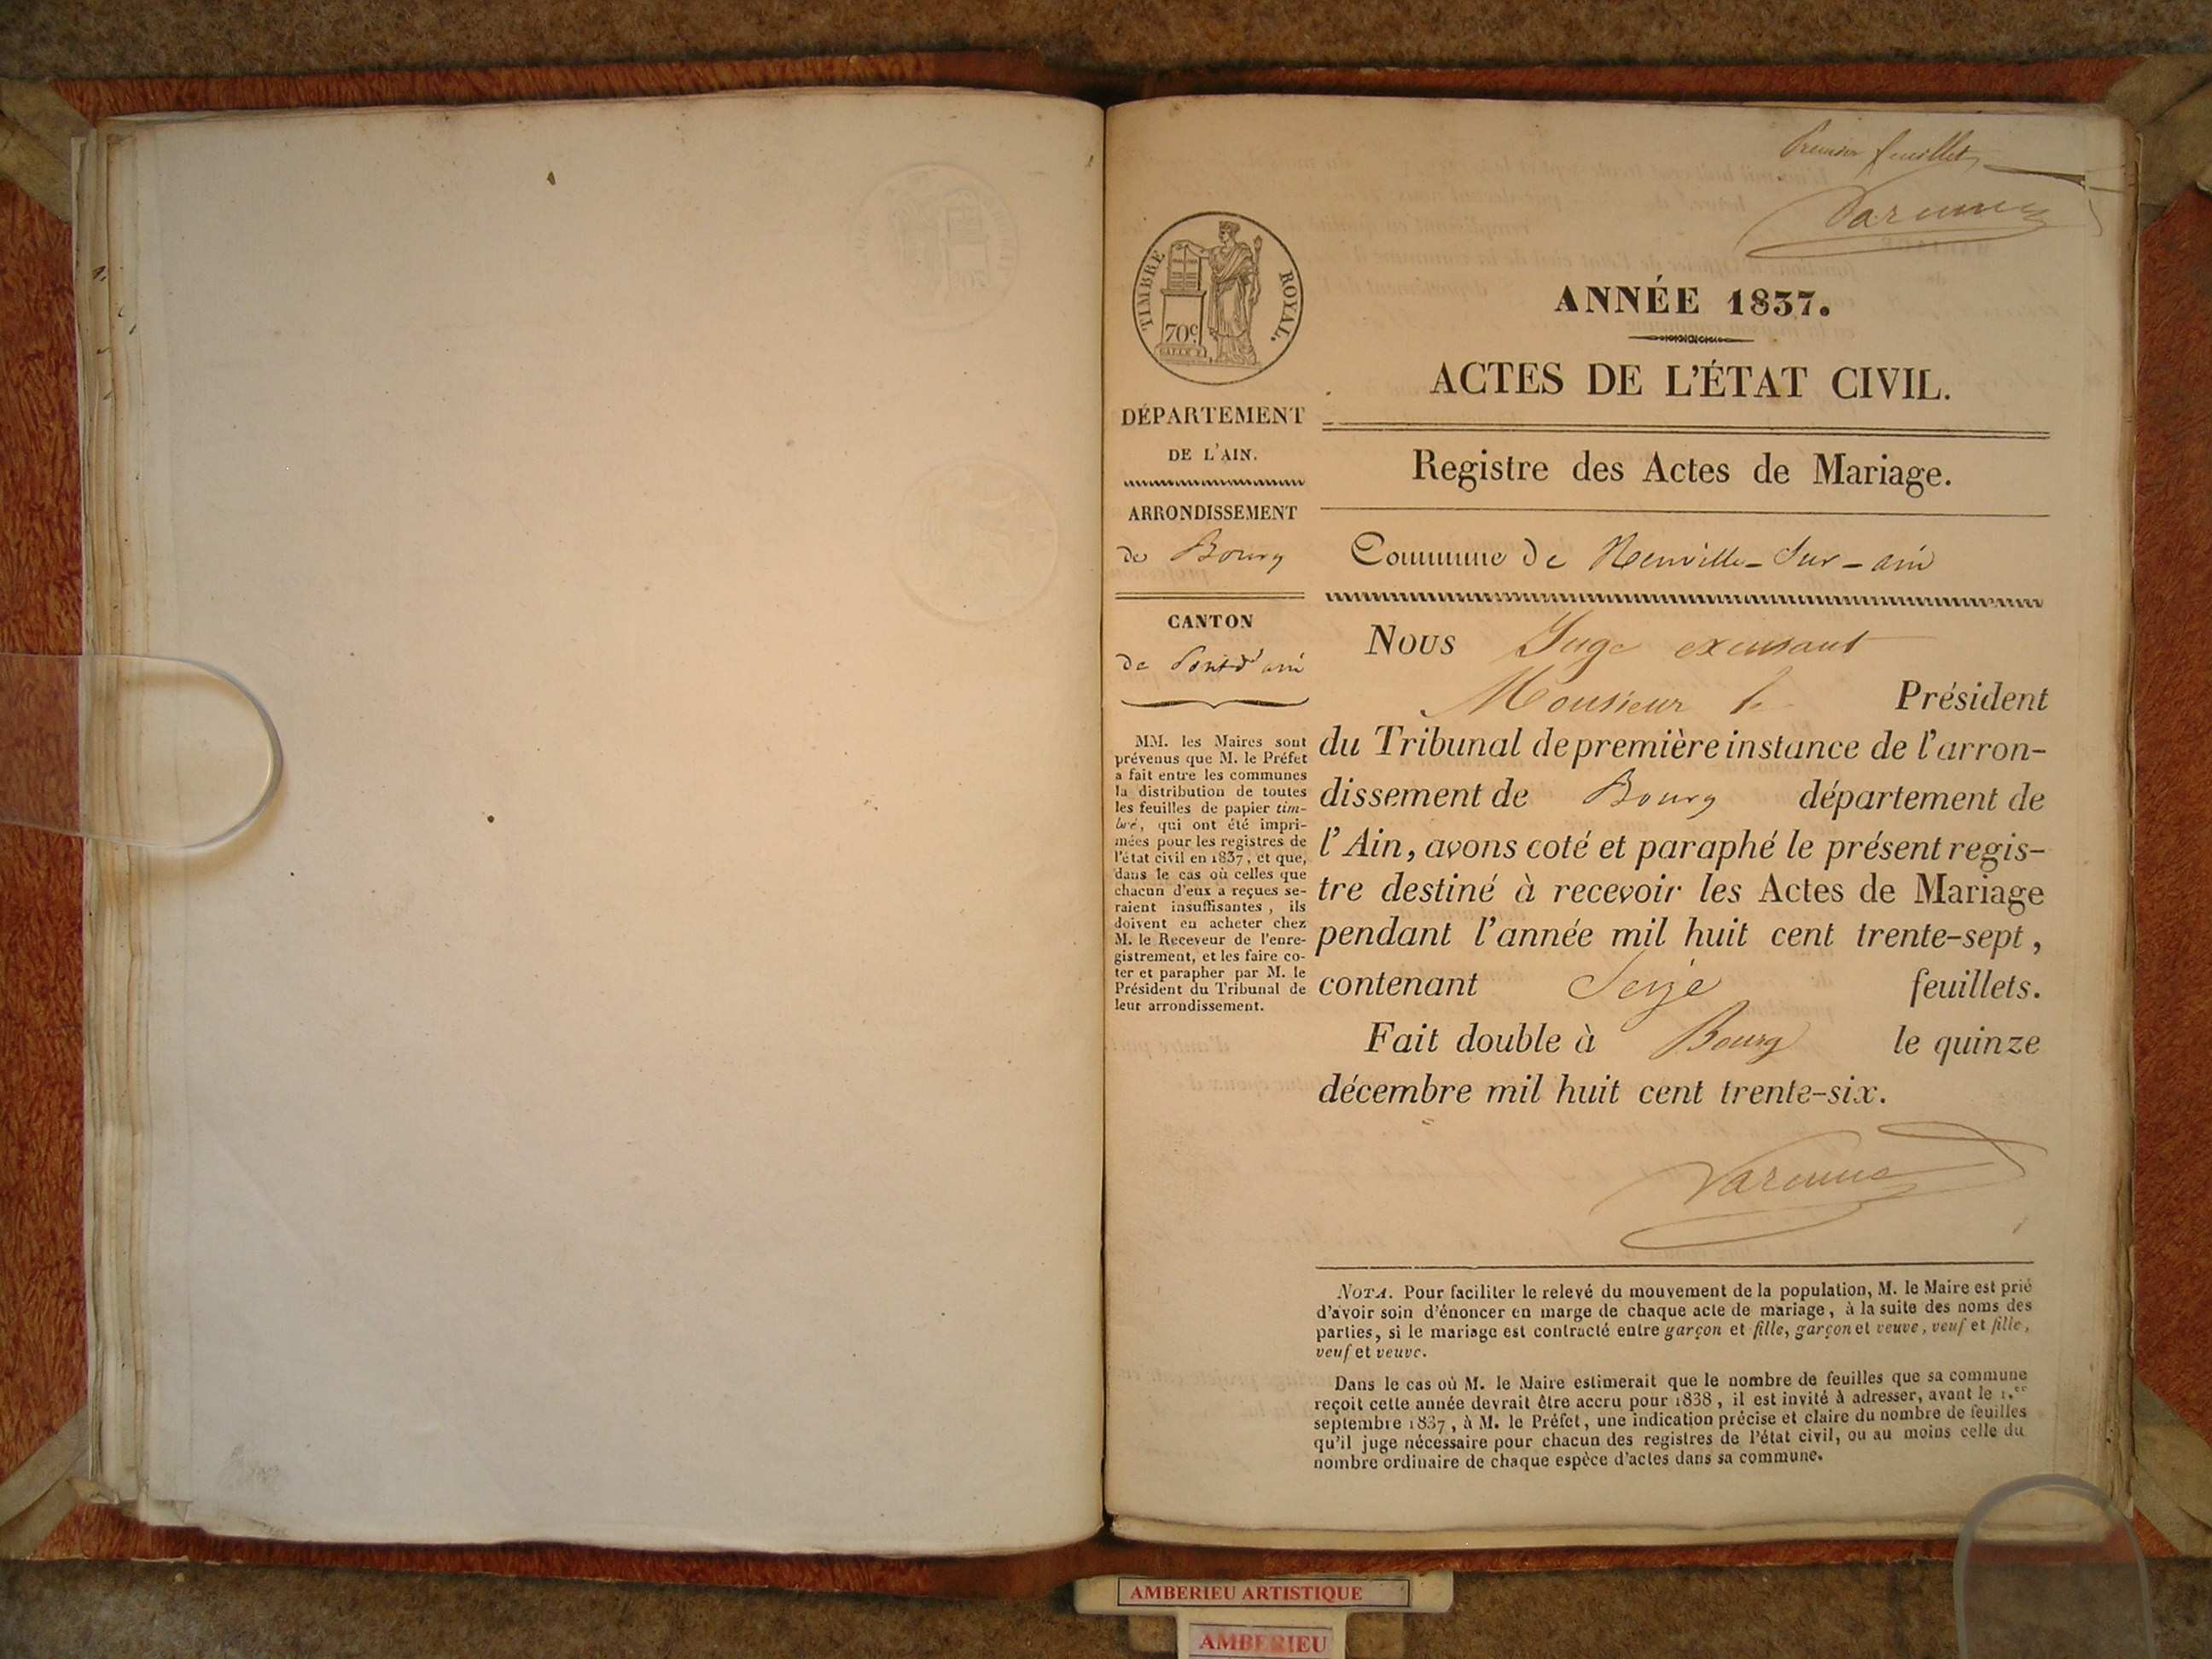 Premier feuillet
TIMBRE ROYAL.
70c
ANNÉE 1837.
ACTES DE L'ÉTAT CIVIL.
DÉPARTEMENT
DE L'AIN.
ARRONDISSEMENT
de Bourg
CANTON
de Pont d'ain
MM. les Maires sont
prévenus que M. le Préfet
a fait entre les communes
la distribution de toutes
les feuilles de papier tim-
bré, qui ont été impri-
mées pour les registres de
l'état civil en 1837, et que,
dans le cas où celles que
chacun d'eux a reçues se-
raient insuffisantes, ils
doivent en acheter chez
M. le Receveur de l'enre-
gistrement, et les faire co-
ter et parapher par M. le
Président du Tribunal de
leur arrondissement.
Registre des Actes de Mariage.
Commune de Neuville-sur-ain
Nous Juge excusant
Monsieur le Président
du Tribunal de première instance de l'arron-
dissement de Bourg département de
l'Ain, avons coté et paraphé le présent regis-
tre destiné à recevoir les Actes de Mariage
pendant l'année mil huit cent trente-sept,
contenant Seize feuillets.
Fait double à Bourg le quinze
décembre mil huit cent trente-six.
NOTA. Pour faciliter le relevé du mouvement de la population, M. le Maire est prié
d'avoir soin d'énoncer en marge de chaque acte de mariage, à la suite des noms des
parties, si le mariage est contracté entre garçon et fille, garçon et veuve, veuf et fille,
veuf et veuve.
Dans le cas où M. le Maire estimerait que le nombre de feuilles que sa commune
reçoit cette année devrait être accru pour 1838, il est invité à adresser, avant le 1.er
septembre 1837, à M. le Préfet, une indication précise et claire du nombre de feuilles
qu'il juge nécessaire pour chacun des registres de l'état civil, ou au moins celle du
nombre ordinaire de chaque espèce d'actes dans sa commune.
AMBERIEU ARTISTIQUE
AMBERIEU